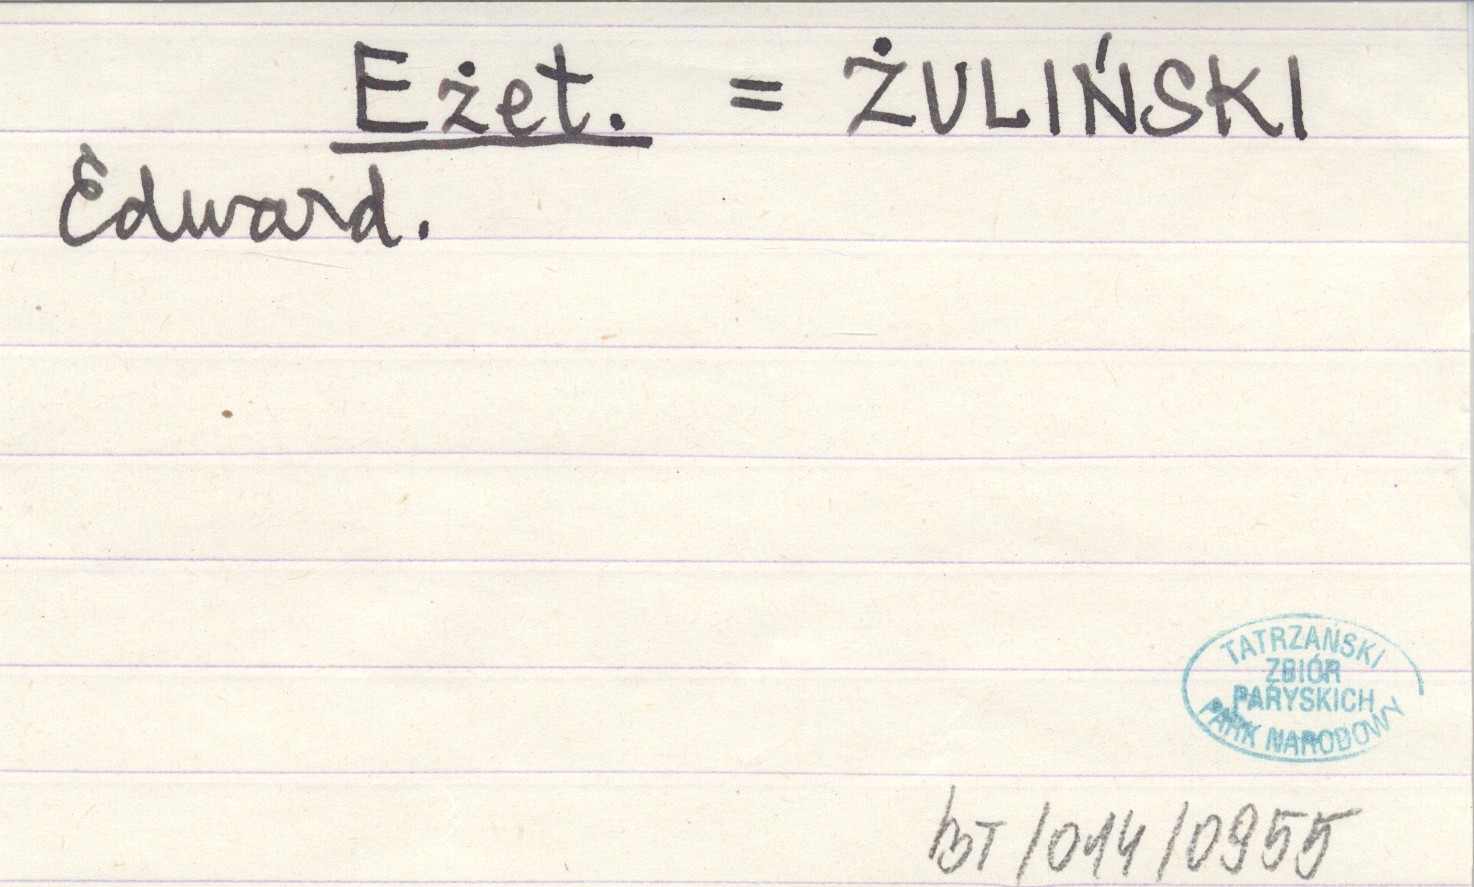 Eżet. = ŻULIŃSKI
Edward.
TATRZAŃSKI
ZBIÓR
PARYSKICH
PARK NARODOWY
BT/014/0955